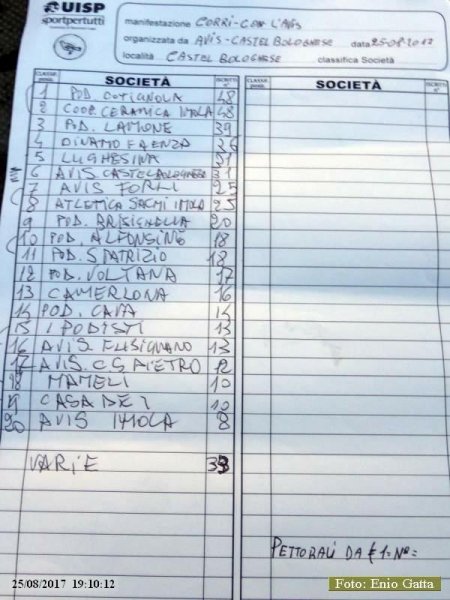 UISP
sportpertutti
manifestazione CORRI-CON L'AVIS
organizzata da AVIS-CASTEL BOLOGNESE data 25-08-2017
località CASTEL BOLOGNESE classifica Società
SOCIETÀ ISCRITTI N° SOCIETÀ ISCRITTI N°
1 POD COTIGNOLA 48
2 COOP. CERAMICA IMOLA 48
3 POD. LAMONE 39
4 DINAMO FAENZA 36
5 LUGHESINA 31
6 AVIS CASTELBOLOGNESE 31
7 AVIS FORLI 25
8 ATLETICA SACMI IMOLA 25
9 POD. BRISIGHELLA 20
10 POD. ALFONSINE 18
11 POD. S PATRIZIO 18
12 POD. VOLTANA 17
13 CAMERLONA 16
14 POD. CAVA 14
15 I PODISTI 13
16 AVIS FUSIGNANO 13
17 AVIS. CS PIETRO 12
18 MAMELI 10
19 CASADEI 10
20 AVIS IMOLA 8
VARIE
PETTORALI DA € 1= N°=
25/08/2017 19:10:12
Foto: Enio Gatta